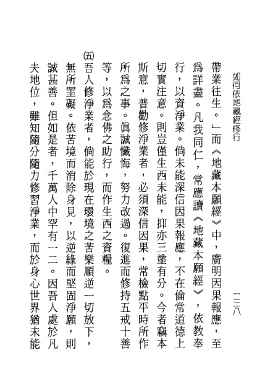 如何依地藏經修行
一三八
帶業往生。」而《地藏本願經》中，廣明因果報應，至
為詳盡。凡我同仁，常應讀《地藏本願經》，依教奉
行，以資淨業。倘未能深信因果報應，不在倫常道德上
切實注意。則豈僅生西未能，抑亦三塗有分。今者竊本
斯意，普勸修淨業者，必須深信因果，常檢點平時所作
所為之事。真誠懺悔，努力改過。復進而修持五戒十善
等，以為念佛之助行，而作生西之資糧。
㈤吾人修淨業者，倘能於現在環境之苦樂順逆一切放下，
無所罣礙。依苦境而消除身見，以逆緣而堅固淨願，則
誠甚善。但如是者，千萬人中罕有一二。因吾人處於凡
夫地位，雖知隨分隨力修習淨業，而於身心世界猶未能